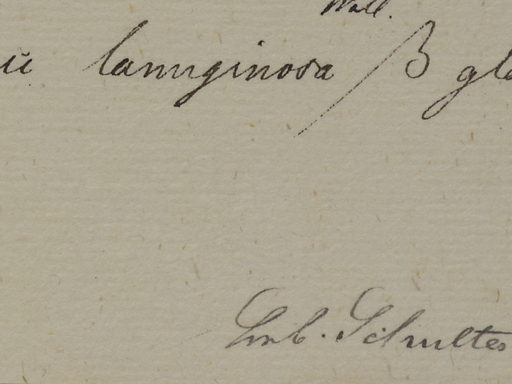 Wall.
lanuginosa β gla
Herb. Schultes